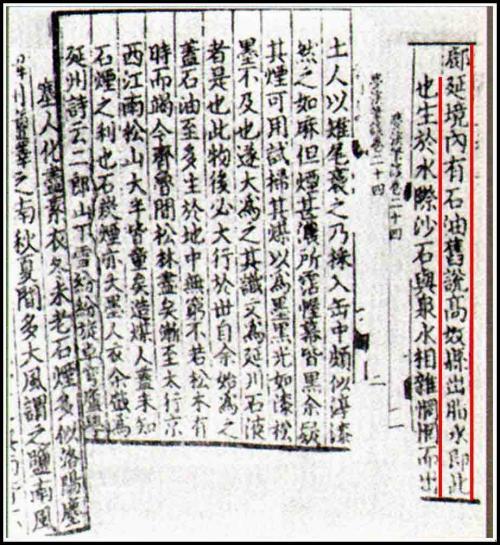 鄜延境內有石油舊說高奴縣出脂水即此
也生於水際沙石與泉水相雜惘惘而出
卷二十四
二
卷二十四
二
土人以雉尾裛之乃採入缶中頗似淳漆
然之如麻但煙甚濃所霑幄幕皆黑余疑
其煙可用試掃其煤以為墨黑光如漆松
墨不及也遂大為之其識文為延川石液
者是也此物後必大行於世自余始為之
蓋石油至多生於地中無窮不若松木有
時而竭今齊魯間松林盡矣漸至太行京
西江南松山大半皆童矣造煤人蓋未知
石煙之利也石炭煙亦大墨人衣余戲為
延州詩云二郎山下雪紛紛旋卓穹廬
塞人化盡素衣冬未老石煙多似洛陽塵
澤之南秋夏間多大風謂之鹽南風